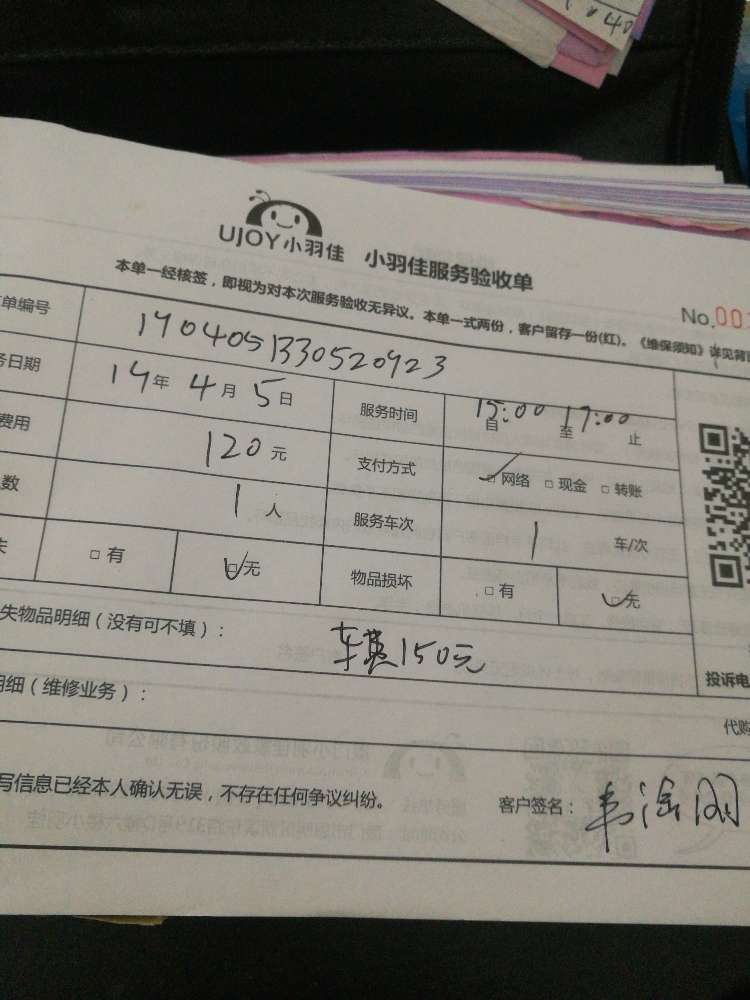 UJOY小羽佳 小羽佳服务验收单
本单一经核签，即视为对本次服务验收无异议。本单一式两份，客户留存一份(红)。《维保须知》详见背面
No.00
单编号 1904051330520923
务日期 19年 4月 5日 服务时间 15:00 17:00
自 至 止
费用 120元 支付方式 网络 现金 转账
数 1人 服务车次 1 车/次
失 有 无 物品损坏 有 无
失物品明细（没有可不填）： 车费150元
投诉电
明细（维修业务）：
代购
写信息已经本人确认无误，不存在任何争议纠纷。 客户签名：